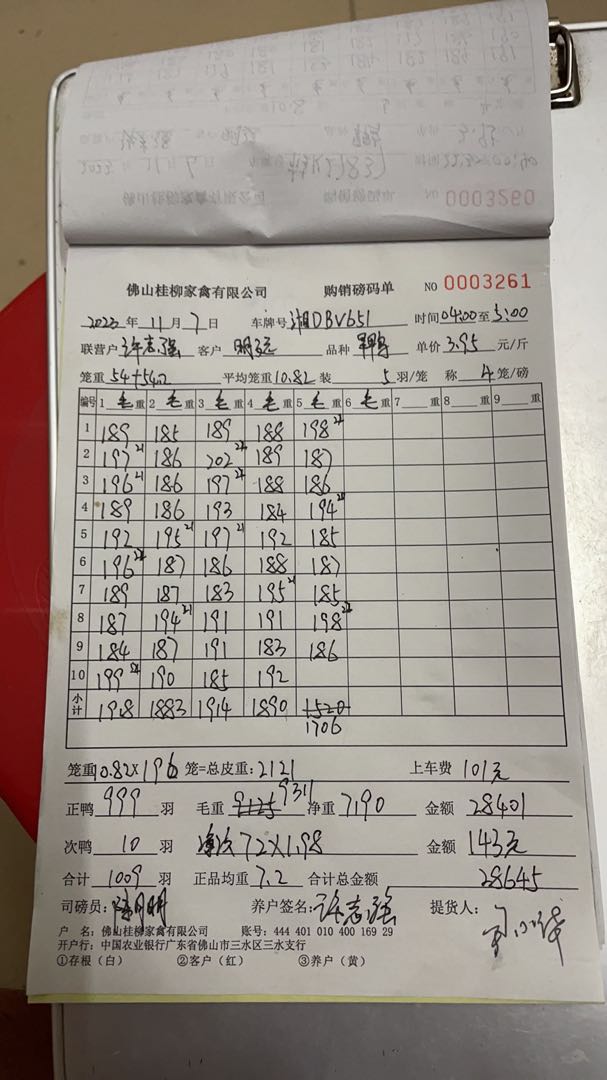 NO 0003260
佛山桂柳家禽有限公司 购销磅码单 NO 0003261
2023年11月7日 车牌号湘DBV651 时间04:00至5:00
联营户许志强 客户 品种 单价3.95元/斤
笼重54+54.2 平均笼重10.82 装5羽/笼 称4笼/磅
编号 1毛重 2毛重 3毛重 4毛重 5毛重 6毛重 7重 8重 9重
1 189 185 189 188 198
2 197 21 186 202 189 187
3 196 21 186 197 188 186
4 189 186 193 184 194
5 192 195 21 197 21 192 185
6 196 187 186 188 187
7 189 187 183 195 21 185
8 187 194 21 191 191 198
9 184 187 191 183 186
10 199 190 185 192
小计 1918 1883 1914 1890 1520
1706
笼重10.82×196笼=总皮重:2121 上车费 101元
正鸭 999 羽 毛重 9125 9311 净重 7190 金额 28401
次鸭 10 羽 72×1.98 金额 143元
合计 1009 羽 正品均重 7.2 合计总金额 28645
司磅员: 养户签名:许志强 提货人:
户 名:佛山桂柳家禽有限公司 账号:444 401 010 400 169 29
开户行:中国农业银行广东省佛山市三水区三水支行
①存根(白) ②客户(红) ③养户(黄)